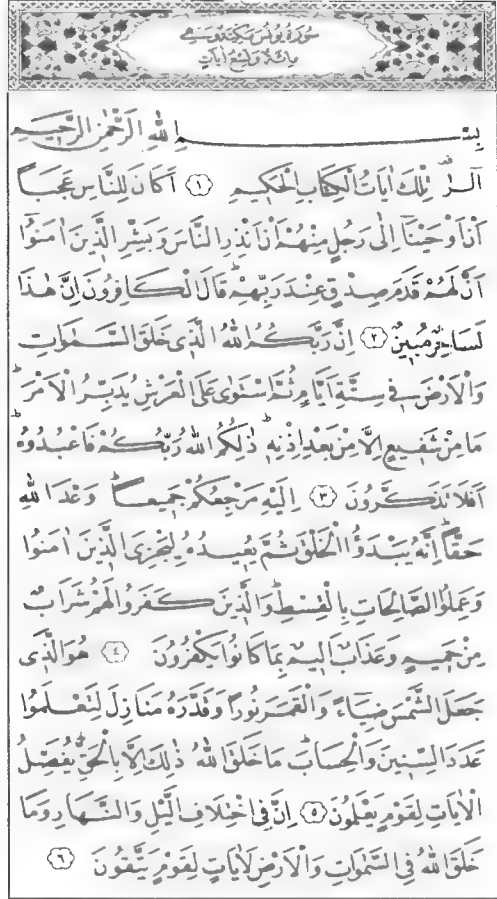 سُورَةُ يُونُسَ مَكِّيَّةٌ وَهِيَ
مِائَةٌ وَتِسْعُ اٰيَاتٍ
بِسْمِ اللّٰهِ الرَّحْمٰنِ الرَّحِيمِ
الٓرٰ۠ تِلْكَ اٰيَاتُ الْكِتَابِ الْحَكِيمِ ﴿١﴾ اَكَانَ لِلنَّاسِ عَجَبًا
اَنْ اَوْحَيْنَٓا اِلٰى رَجُلٍ مِنْهُمْ اَنْ اَنْذِرِ النَّاسَ وَبَشِّرِ الَّذِينَ اٰمَنُٓوا
اَنَّ لَهُمْ قَدَمَ صِدْقٍ عِنْدَ رَبِّهِمْۜ قَالَ الْكَافِرُونَ اِنَّ هٰذَا
لَسَاحِرٌ مُبِينٌ ﴿٢﴾ اِنَّ رَبَّكُمُ اللّٰهُ الَّذِي خَلَقَ السَّمٰوَاتِ
وَالْاَرْضَ فِي سِتَّةِ اَيَّامٍ ثُمَّ اسْتَوٰى عَلَى الْعَرْشِ يُدَبِّرُ الْاَمْرَۜ
مَا مِنْ شَفِيعٍ اِلَّا مِنْ بَعْدِ اِذْنِهِۜ ذٰلِكُمُ اللّٰهُ رَبُّكُمْ فَاعْبُدُوهُۜ
اَفَلَا تَذَكَّرُونَ ﴿٣﴾ اِلَيْهِ مَرْجِعُكُمْ جَمِيعًاۜ وَعْدَ اللّٰهِ
حَقًّاۜ اِنَّهُ يَبْدَؤُا الْخَلْقَ ثُمَّ يُعِيدُهُ لِيَجْزِيَ الَّذِينَ اٰمَنُوا
وَعَمِلُوا الصَّالِحَاتِ بِالْقِسْطِۜ وَالَّذِينَ كَفَرُوا لَهُمْ شَرَابٌ
مِنْ حَمِيمٍ وَعَذَابٌ اَلِيمٌ بِمَا كَانُوا يَكْفُرُونَ ﴿٤﴾ هُوَ الَّذِي
جَعَلَ الشَّمْسَ ضِيَٓاءً وَالْقَمَرَ نُورًا وَقَدَّرَهُ مَنَازِلَ لِتَعْلَمُوا
عَدَدَ السِّنِينَ وَالْحِسَابَۜ مَا خَلَقَ اللّٰهُ ذٰلِكَ اِلَّا بِالْحَقِّۚ يُفَصِّلُ
الْاٰيَاتِ لِقَوْمٍ يَعْلَمُونَ ﴿٥﴾ اِنَّ فِي اخْتِلَافِ الَّيْلِ وَالنَّهَارِ وَمَا
خَلَقَ اللّٰهُ فِي السَّمٰوَاتِ وَالْاَرْضِ لَاٰيَاتٍ لِقَوْمٍ يَتَّقُونَ ﴿٦﴾